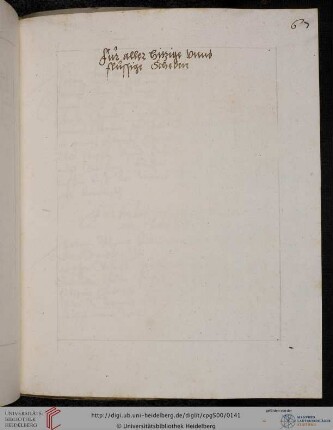 Für aller hitzige vnnd
flüssige Scheden
http://digi.ub.uni-heidelberg.de/diglit/cpg500/0141
© Universitätsbibliothek Heidelberg
UNIVERSITÄTS-
BIBLIOTHEK
HEIDELBERG